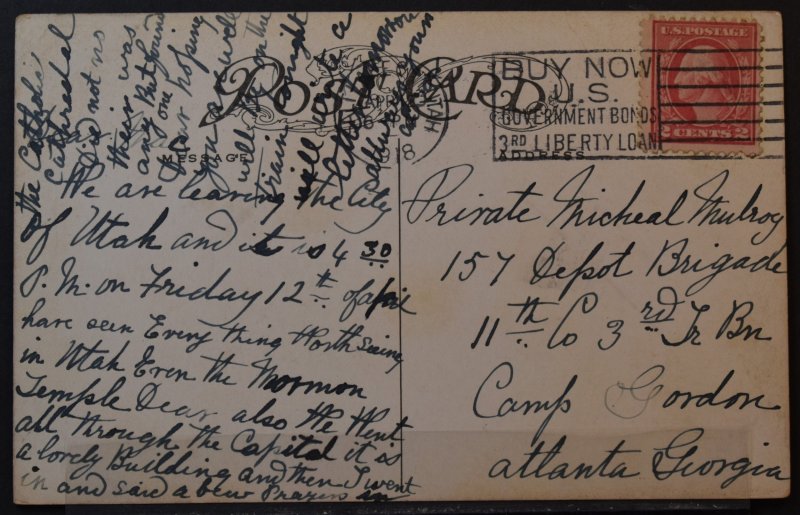 POST CARD
BUY NOW
U.S.
GOVERNMENT BONDS
3RD LIBERTY LOAN
U.S. POSTAGE
2 CENTS 2
APR
1918
MESSAGE
ADDRESS
We are leaving the City
of Utah and it is 4 30
P. M. on Friday 12th of april
have seen Every thing Worth Seeing
in Utah Even the Mormon
Temple Dear also We Went
all through the Capital it is
a lovely Building and then I went
in and said a bew Prayers in
the Catholic
Cathedral
Did not no
their was
any But found
one
Dear hoping
your well
will be on the
train
night
will write a
letter tomorrow
as your
Private Micheal Mulroy
157 Depot Brigade
11th Co 3rd Tr Bn
Camp Gordon
atlanta Georgia